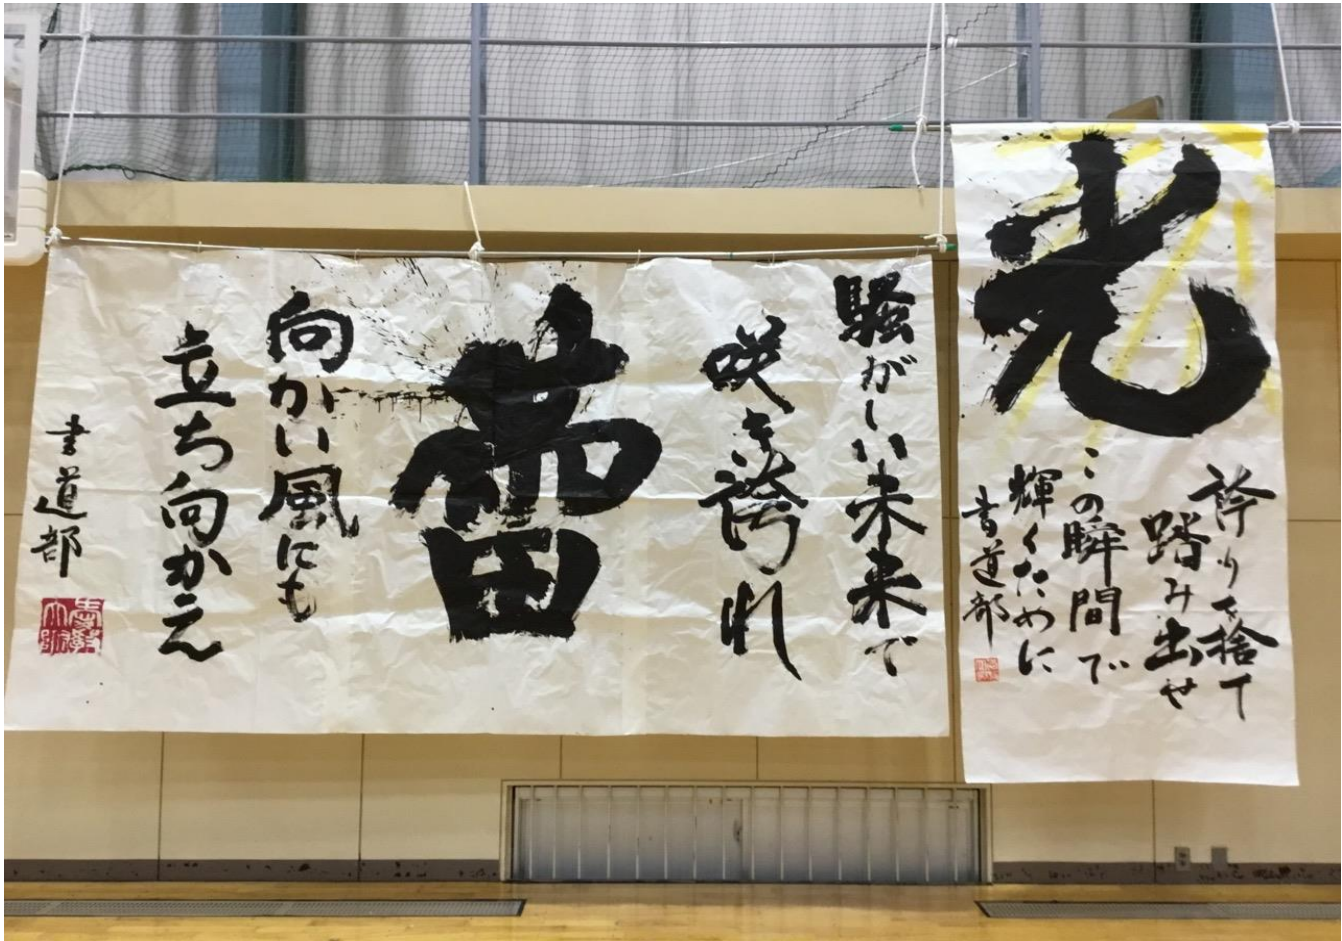 光
誇りを捨て
踏み出せ
この瞬間で
輝くために
書道部
騒がしい未来で
咲き誇れ
蕾
向かい風にも
立ち向かえ
書道部